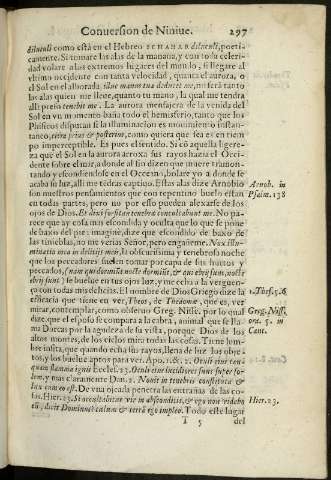 Conuersion de Niniue. 297
diluculi como está en el Hebreo SCHAHAR diluculi, poeti-
camente. Si tomare las alas de la mañana, y con toda celeri-
dad volare a las extremos lugares del mundo, si llegare al
vltimo occidente con tanta velocidad, quanta el aurora, o
el Sol en el alborada, illuc manus tua deducet me, no será tanto
las alas quien me lleue, quanto tu mano, la qual me tendra
alli preso tenebit me. La aurora mensajera de la venida del
Sol en vn momento baña todo el hemisferio, tanto que los
Phisicos disputan si la illuminacion es mouimiento sustan-
taneo, citra prius & posterius, como quiera que sea es en tiem
po imperceptible. Es pues el sentido. Si cõ aquella ligere-
za que el Sol en la aurora arroxa sus rayos hazia el Occi-
dente sobre el mar, a donde al fin dizen que muere trãmon-
tando y escondiendose en el Oceano, bolare yo a donde se
acaba su luz, alli me tẽdras captiuo. Estas alas dize Arnobio
son nuestros pensamientos que con repentino buelo estan
en todas partes, pero no por esso pueden alexarse de los
ojos de Dios. Et dixi forsitan tenebræ conculcabunt me. No pa-
rece que ay cosa mas escondida y oculta que lo que se pone
de baxo del pie: imagine, dize que escondido de baxo de
las tinieblas, no me verias Señor, pero engañeme. Nox illu-
minatio mea in delitijs meis, la obscurissima y tenebrosa noche
que los peccadores suelen tomar por capa de sus hurtos y
peccados, (nam qui dormiũt nocte dormiũt, & qui ebrij sunt, nocte
ebrij sunt) se buelue en tus ojos luz, y me echa a la verguen-
ça con todas mis delicias. El nombre de Dios Griego dize la
efficacia que tiene en ver, Theos, de Theaome, que es, ver
mirar, contemplar, como obseruo Greg. Nisse. por lo qual
dize. que el esposo se compara a la cabra, animal que se lla-
ma Dorcas por la agudeza de su vista, porque Dios de los
altos montes, de los cielos mira todas las cosas. Tiene lum-
bre insita, que quando echa sus rayos, llena de luz los obje-
tos, y los buelue aptos para ver. Apo. 1. & 2. Oculi eius tan-
quam flamma ignis Eccles. 23. Oculi eius lucidiores sunt super so-
lem, y mas claramente Dan. 2. Nouit in tenebris constituta &
lux cum eo est. De vna ojeada penetra las entrañas de las co-
sas. Hier. 23. Si occultabitur vir in absconditis, & ego non videbo
eũ, dicit Dominus? cælum & terrã ego impleo. Todo este lugar
T 5 del
Arnob. in
Psalm. 138
1. Thes. 5. 6
Greg. Niss.
ora. 5. in
Cant.
Hier. 23.